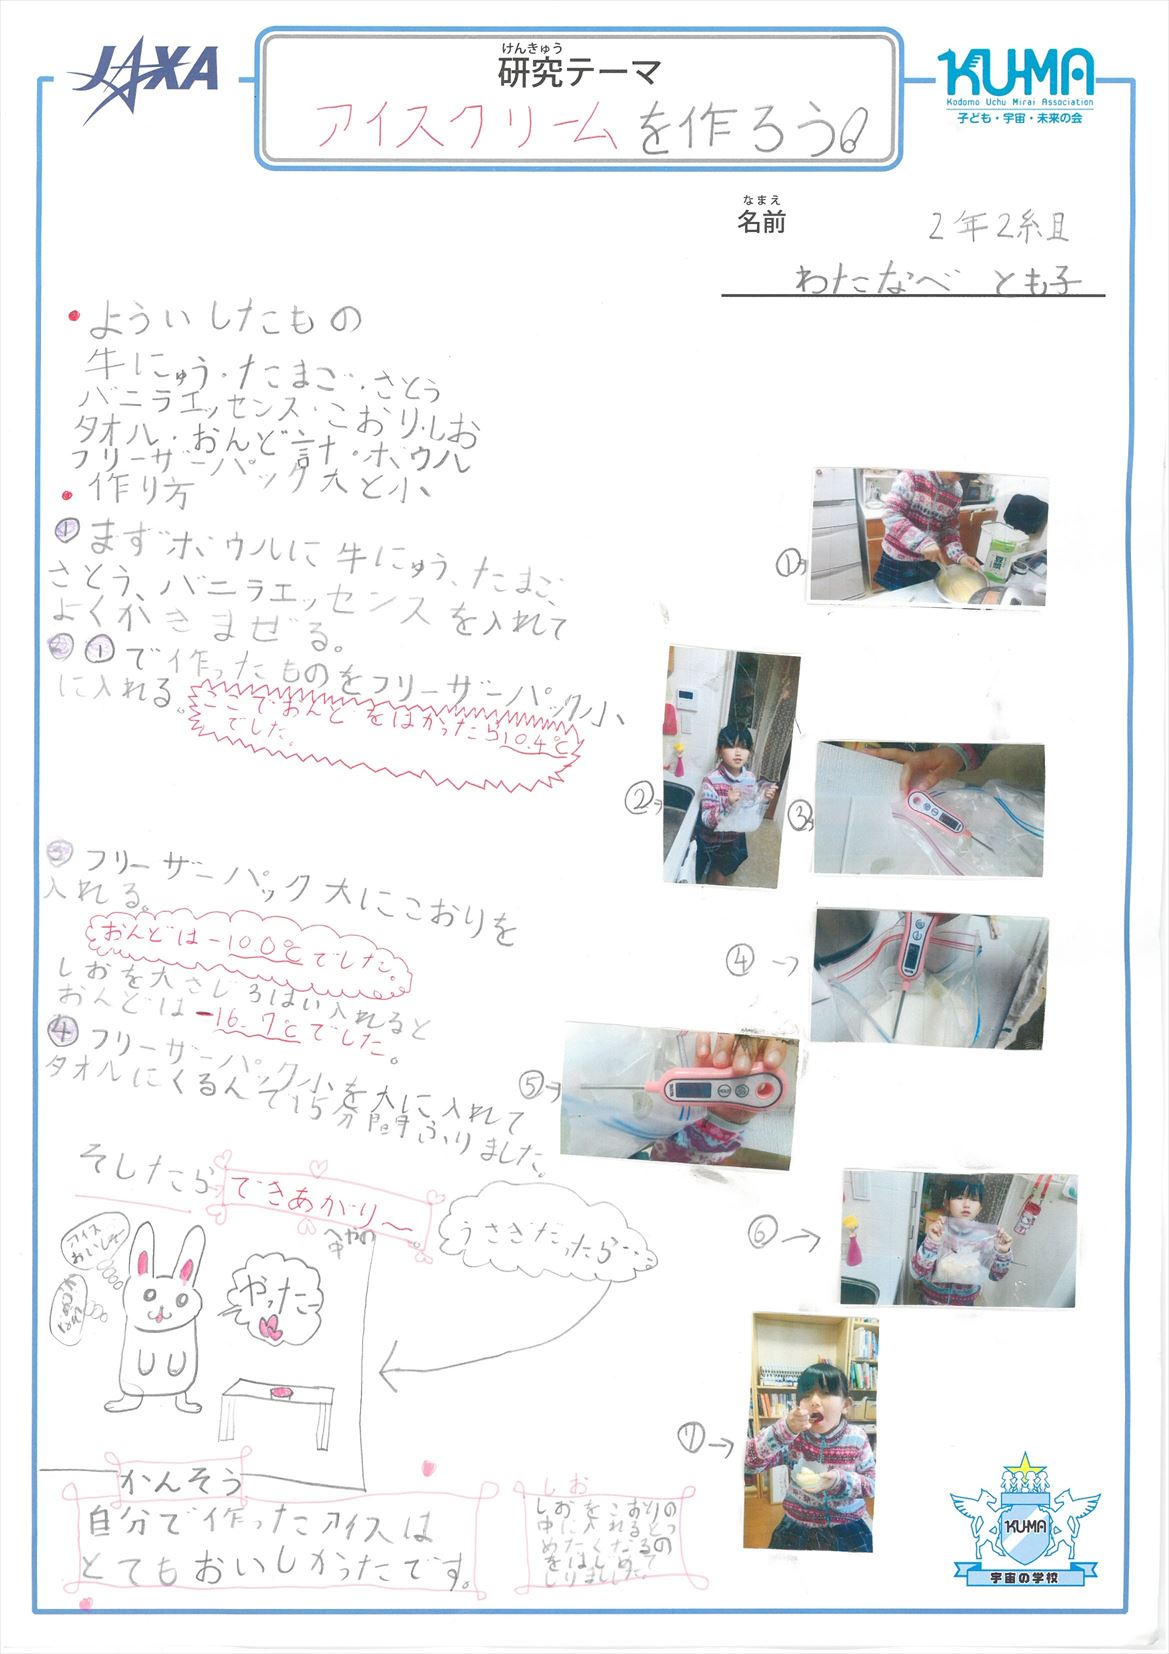 JAXA
けんきゅう
研究テーマ
アイスクリームを作ろう!
KU-MA
Kodomo Uchu Mirai Association
子ども・宇宙・未来の会
なまえ
名前
2年2組
わたなべ とも子
・ようい したもの
牛にゅう・たまご・さとう
バニラエッセンス・こおり・しお
タオル・おんど計・ボウル
フリーザーパック大と小
・作り方
① まずボウルに牛にゅう、たまご、
さとう、バニラエッセンスを入れて
よくかきまぜる。
② ①で作ったものをフリーザーパック小
に入れる。
ここでおんどをはかったら10.4℃
でした。
③ フリーザーパック大にこおりを
入れる。
おんどは-10.0℃でした。
しおを大さじ3ばい入れると
おんどは-16.7℃でした。
④ フリーザーパック小を大に入れて
タオルにくるんで15分間ふりました。
そしたら
できあがり〜
うさぎだったら…
へやの
中
アイス
おいしそ
やったー
かんそう
自分で作ったアイスは
とてもおいしかったです。
しお
しおをこおりの
中に入れるとつ
めたくなるの
をはじめて
しりました。
①→
②→
③→
④→
⑤→
⑥→
⑦→
KU-MA
宇宙の学校